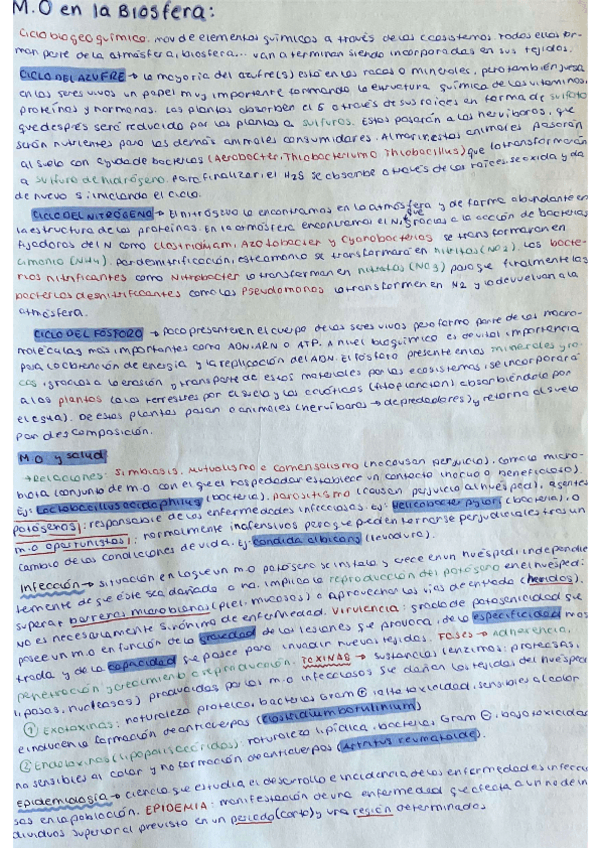 M.O en la Biosfera:
Ciclo biogeoquímico: mov de elementos químicos a través de los ecosistemas todos ellos for-
man parte de la atmósfera, biosfera... van a terminan siendo incorporadas en sus tejidos.
CICLO DEL AZUFRE → la mayoría del azufre (S) está en las rocas o minerales, pero también juega
en los seres vivos un papel muy importante formando la estructura química de las vitaminas,
proteínas y hormonas. Las plantas absorben el S a través de sus raíces en forma de sulfato
que después será reducido por las plantas a sulfuros. Estos pasarán a los hervíboros, que
serán nutrientes para los demás animales consumidores. Al morir estos animales pasarán
al suelo con ayuda de bacterias (Aerobacter, Thiobacterium o Thiobacillus) que lo transformarán
a sulfuro de hidrógeno. Para finalizar, el H2S se absorbe a través de las raíces, se oxida y da
de nuevo S, iniciando el ciclo.
CICLO DEL NITRÓGENO → El nitrógeno lo encontramos en la atmósfera y de forma abundante en
la estructura de las proteínas. En la atmósfera encontramos el N2 que gracias a la acción de bacterias
fijadoras del N como Clostridium, Azotobacter y Cyanobacterias se transforman en
amonio (NH4). Por denitrificación, este amonio se transformará en nitritos (NO2). Las bacte-
rias nitrificantes como Nitrobacter lo transforman en nitratos (NO3) para que finalmente las
bacterias desnitrificantes como las Pseudomonas lo transformen en N2 y lo devuelvan a la
atmósfera.
CICLO DEL FÓSFORO → poco presente en el cuerpo de los seres vivos pero forma parte de las macro-
moléculas más importantes como ADN, ARN o ATP. A nivel bioquímico es de vital importancia
para la obtención de energía y la replicación del ADN. El fósforo presente en los minerales y ro-
cas, gracias a la erosión y transporte de estos materiales por los ecosistemas, se incorporará
a las plantas (a las terrestres por el suelo y las acuáticas (fitoplancton) absorbiéndolo por
el agua). De estas plantas pasan a animales (hervíboros → depredadores) y retorna al suelo
por descomposición.
M.O y salud
→ Relaciones: Simbiosis, mutualismo o comensalismo (no causan perjuicio), como la micro-
biota (conjunto de m.o con el que el hospedador establece un contacto inocuo o beneficioso)
Ej: Lactobacillus acidophilus (bacteria), parasitismo (causan perjuicio al huésped), agentes
patógenos: responsable de las enfermedades infecciosas. Ej: Helicobacter pylori (bacteria), o
m.o oportunistas: normalmente inofensivos pero que pueden tornarse perjudiciales tras un
cambio de las condiciones de vida. Ej: candida albicans (levadura).
Infección → situación en la que un m.o patógeno se instala y crece en un huésped, independie
temente de que éste sea dañado o no. Implica la reproducción del patógeno en el huésped:
superar barreras microbianas (piel, mucosas) o aprovechar las vías de entrada (heridas).
no es necesariamente sinónimo de enfermedad. Virulencia: grado de patogenicidad que
posee un m.o en función de la gravedad de las lesiones que provoca, de la especificidad mos
trada y de la capacidad que posee para invadir nuevos tejidos. Fases → adherencia,
penetración y crecimiento o reproducción. TOXINAS → sustancias (enzimas: proteasas,
lipasas, nucleasas) producidas por los m.o infecciosos que dañan los tejidos del huésped
① Exotoxinas: naturaleza proteica, bacterias Gram ⊕ (alta toxicidad, sensibles al calor
e inducen la formación de anticuerpos (clostridium botulinium)
② Endotoxinas (lipopolisacáridos): naturaleza lipídica, bacterias Gram ⊖, baja toxicidad
no sensibles al calor y no formación de anticuerpos (Artritis reumatoide).
Epidemiología → ciencia que estudia el desarrollo e incidencia de las enfermedades infeccio
sas en la población. EPIDEMIA: manifestación de una enfermedad que afecta a un no de in
dividuos superior al previsto en un periodo (corto) y una región determinados